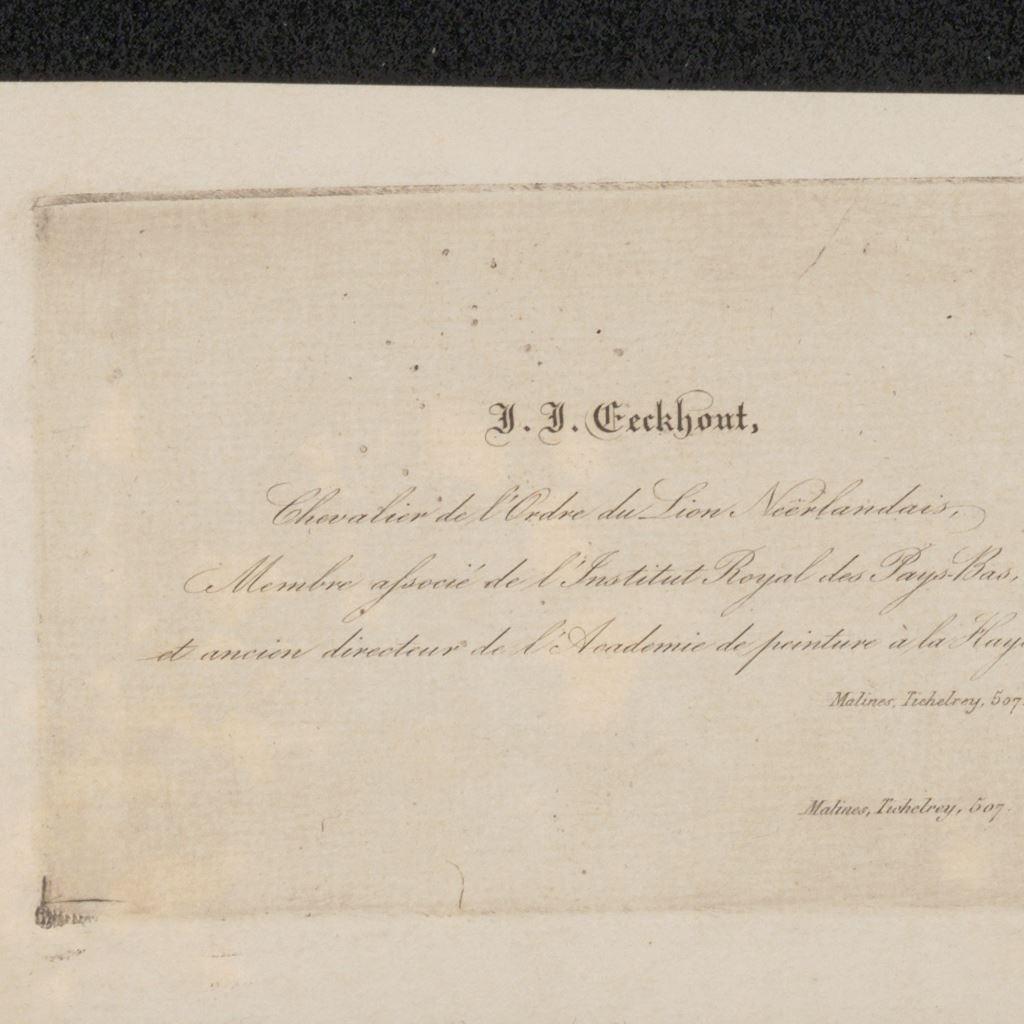 J. J. Eeckhout,
Chevalier de l'Ordre du Lion Néêrlandais,
Membre associé de l'Institut Royal des Pays-Bas,
et ancien directeur de l'Academie de peinture à la Haye
Malines, Tichelrey, 507.
Malines, Tichelrey, 507.